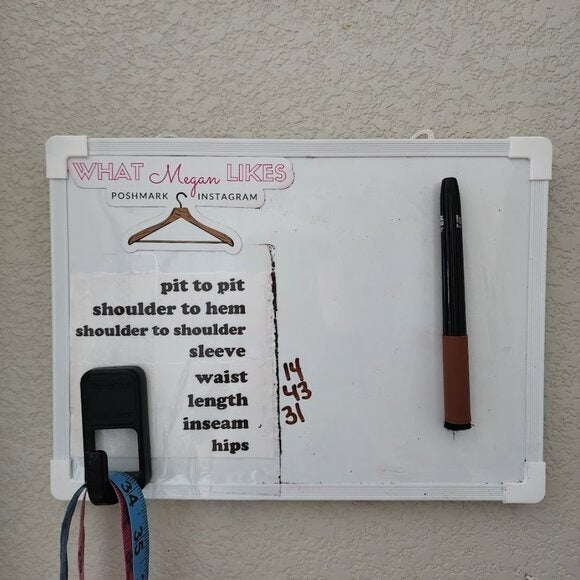 WHAT Megan LIKES
POSHMARK INSTAGRAM
pit to pit
shoulder to hem
shoulder to shoulder
sleeve
waist 14
length 43
inseam 31
hips
34
35